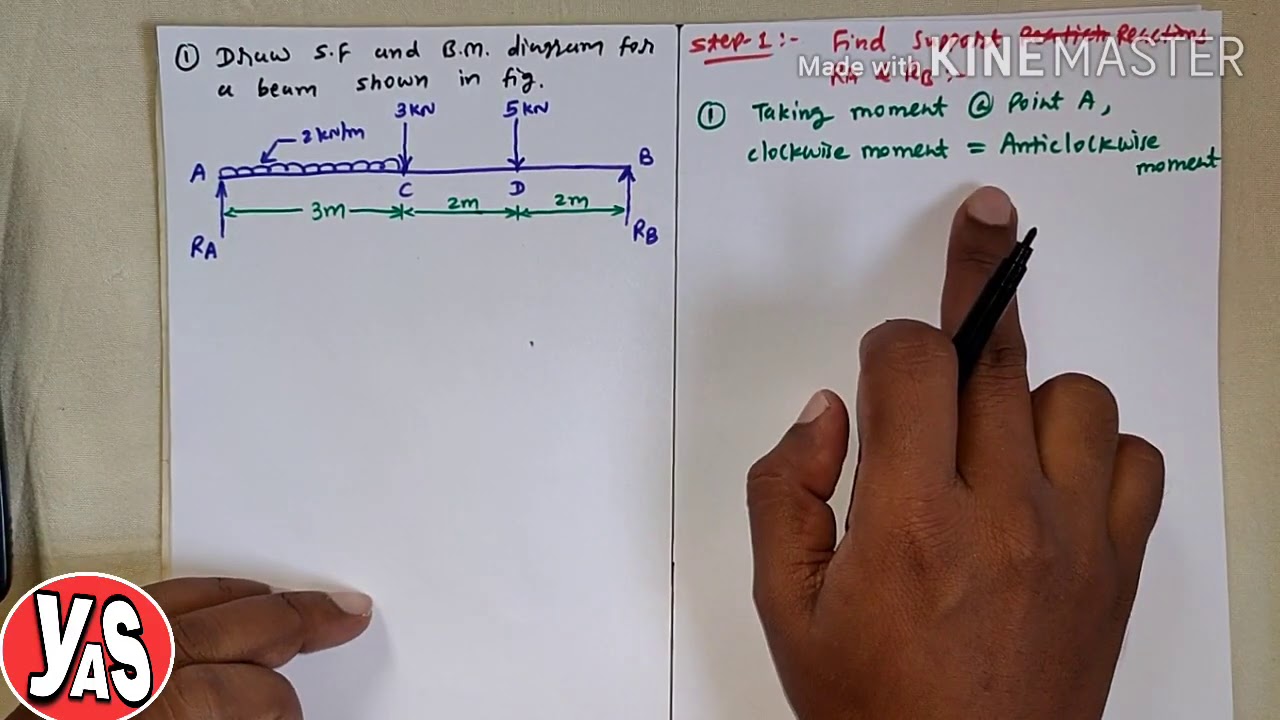 ① Draw S.F and B.M. diagram for
a beam shown in fig.
3KN
5KN
2 kN/m
A
B
C
D
3m
2m
2m
RA
RB
Step-1:- Find Support Reactions
RA & RB:-
Made with KINEMASTER
① Taking moment @ Point A,
clockwise moment = Anticlockwise
moment
YAS